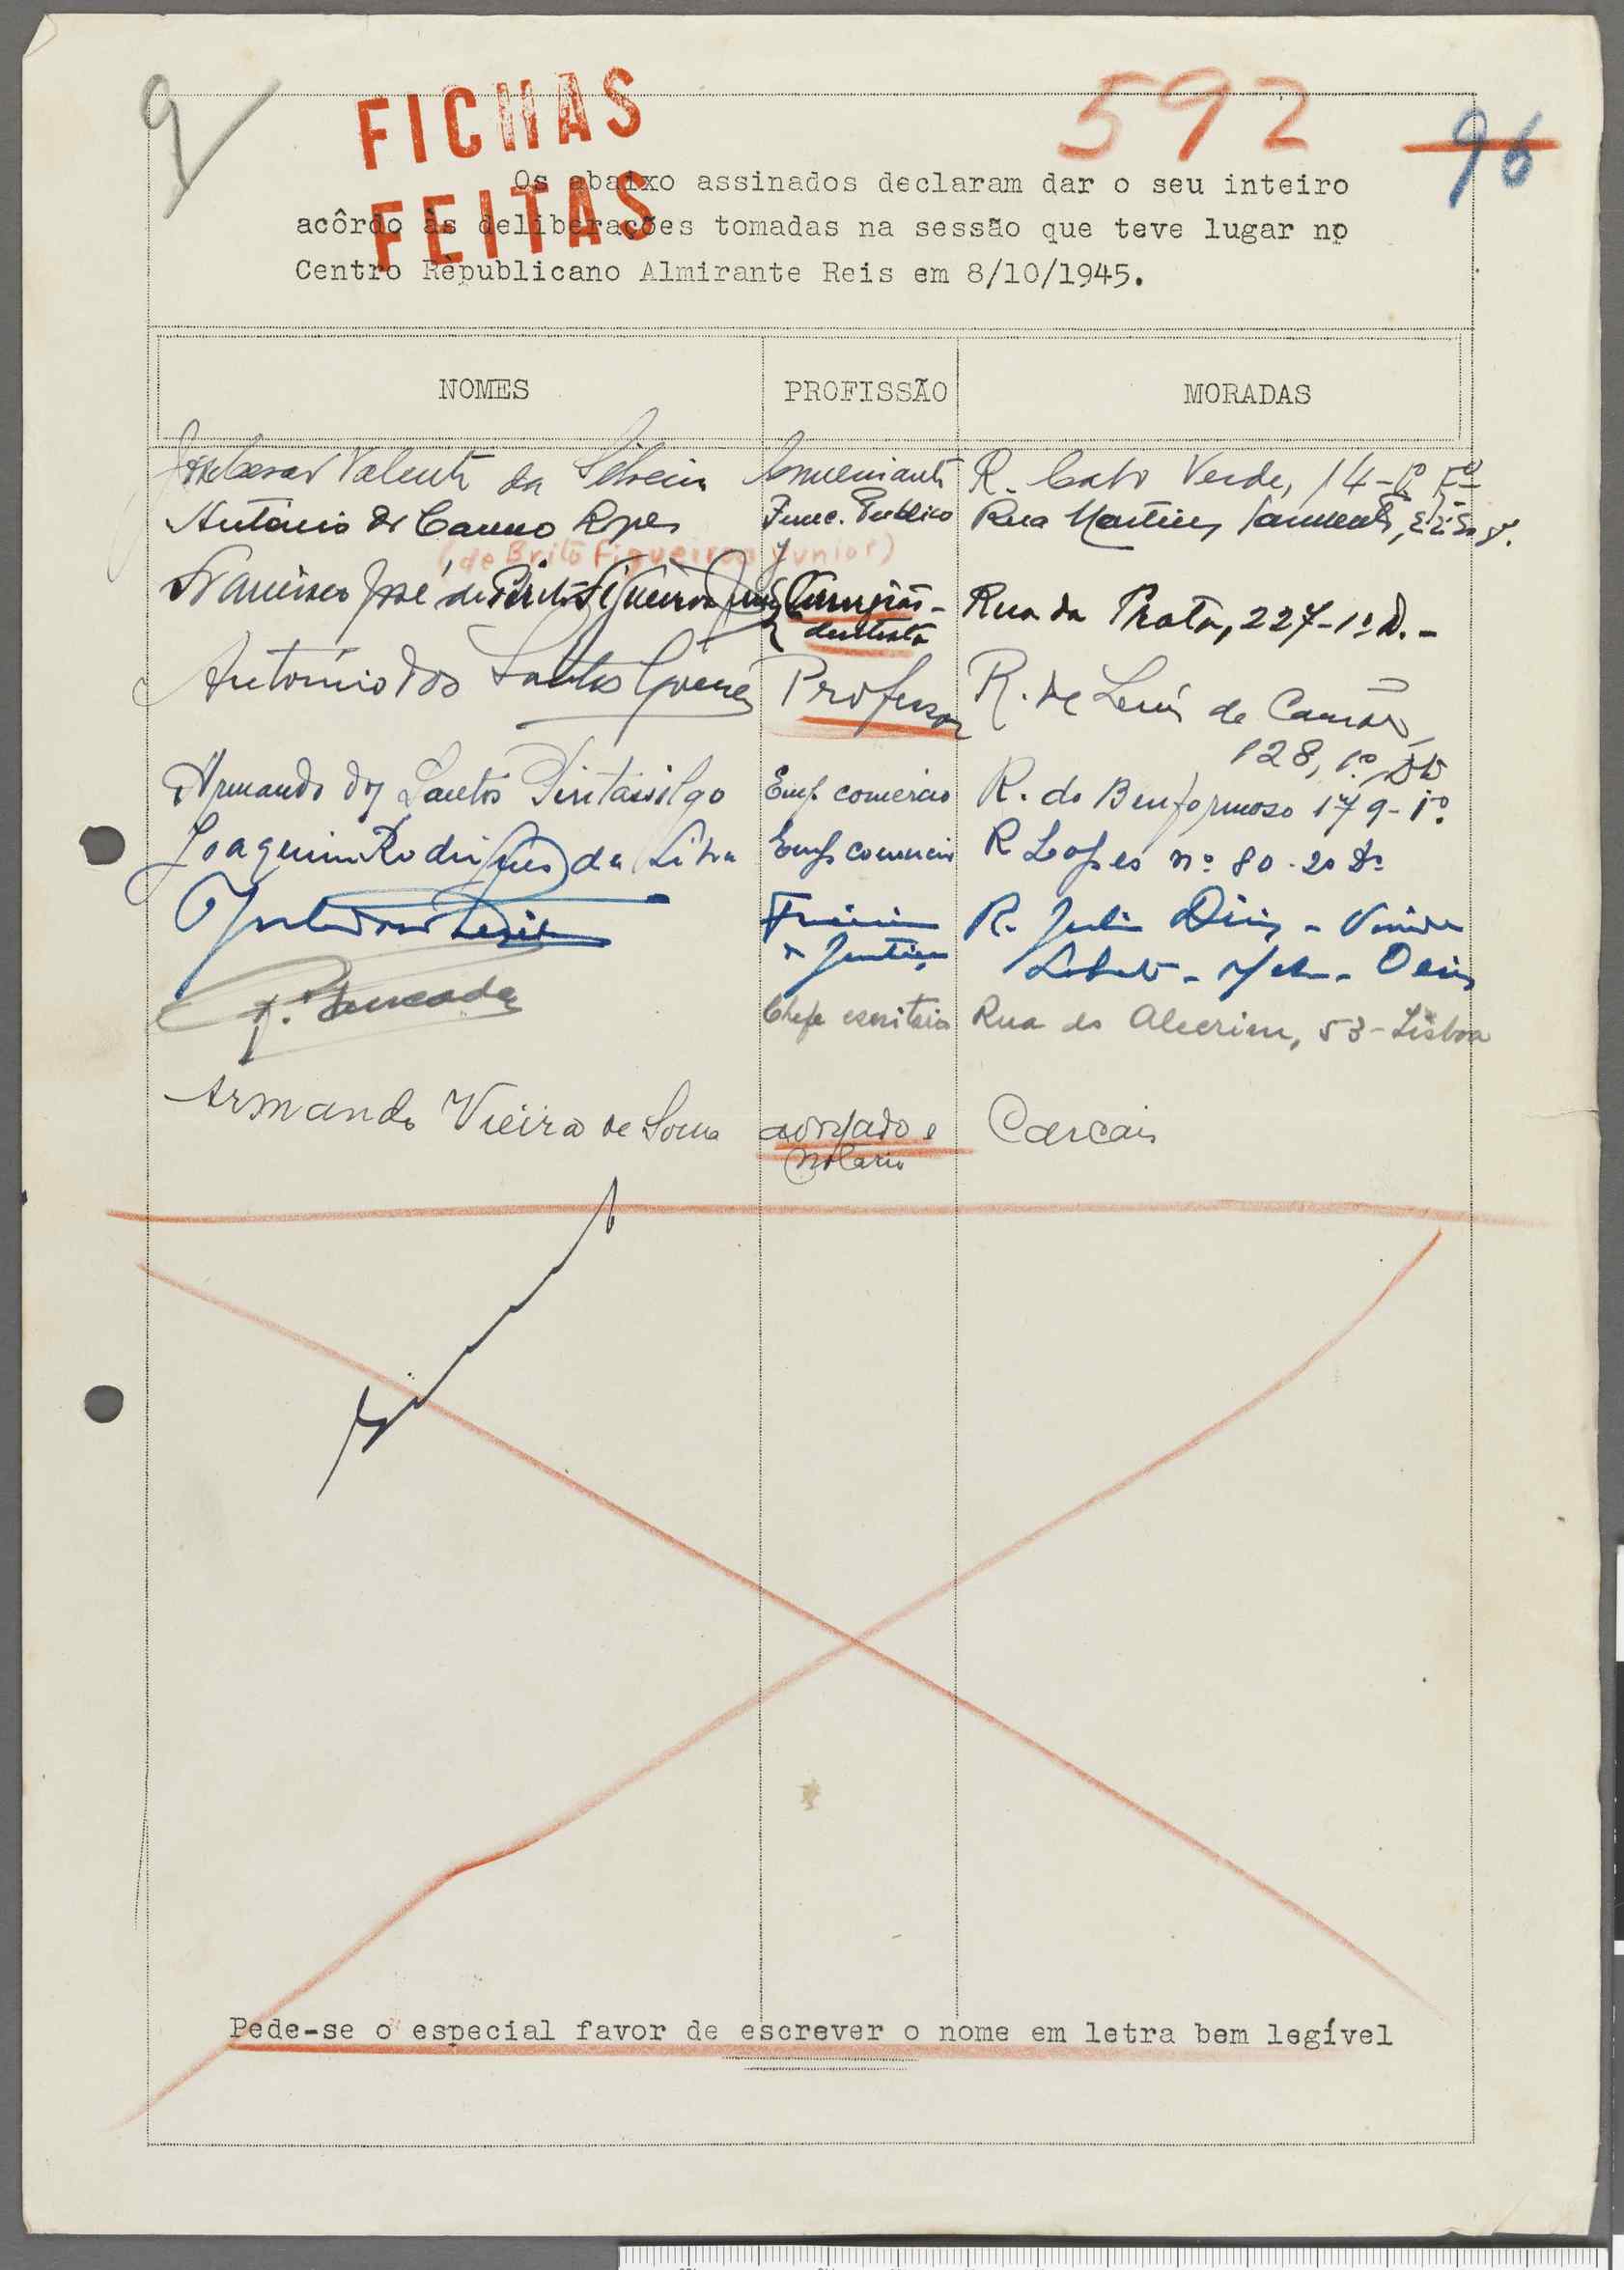 9
FICHAS
FEITAS
592
96
Os abaixo assinados declaram dar o seu inteiro
acôrdo às deliberações tomadas na sessão que teve lugar no
Centro Republicano Almirante Reis em 8/10/1945.
NOMES PROFISSÃO MORADAS
Cesar Valente da Silveira Comerciante R. Cabo Verde, 14-
António do Carmo Lopes Func. Publico Rua Martins Sarmento,
(de Brito Figueiroa Junior)
Francisco José de Brito Figueirôa Cirurgião- Rua da Prata, 227-1º D.-
dentista
António dos Santos Professor R. de Luís de Camões,
128, 1º, Dto
Armando dos Santos Pintassilgo Emp. comercio R. do Benformoso 179-1º
Joaquim Rodrigues da Silva Emp. comercio R Lopes nº 80-2º Dº
R. Julio Diniz -
Justiça
Chefe escritório Rua do Alecrim, 53-Lisboa
Armando Vieira de Sousa advogado e Cascais
notario
Pede-se o especial favor de escrever o nome em letra bem legível